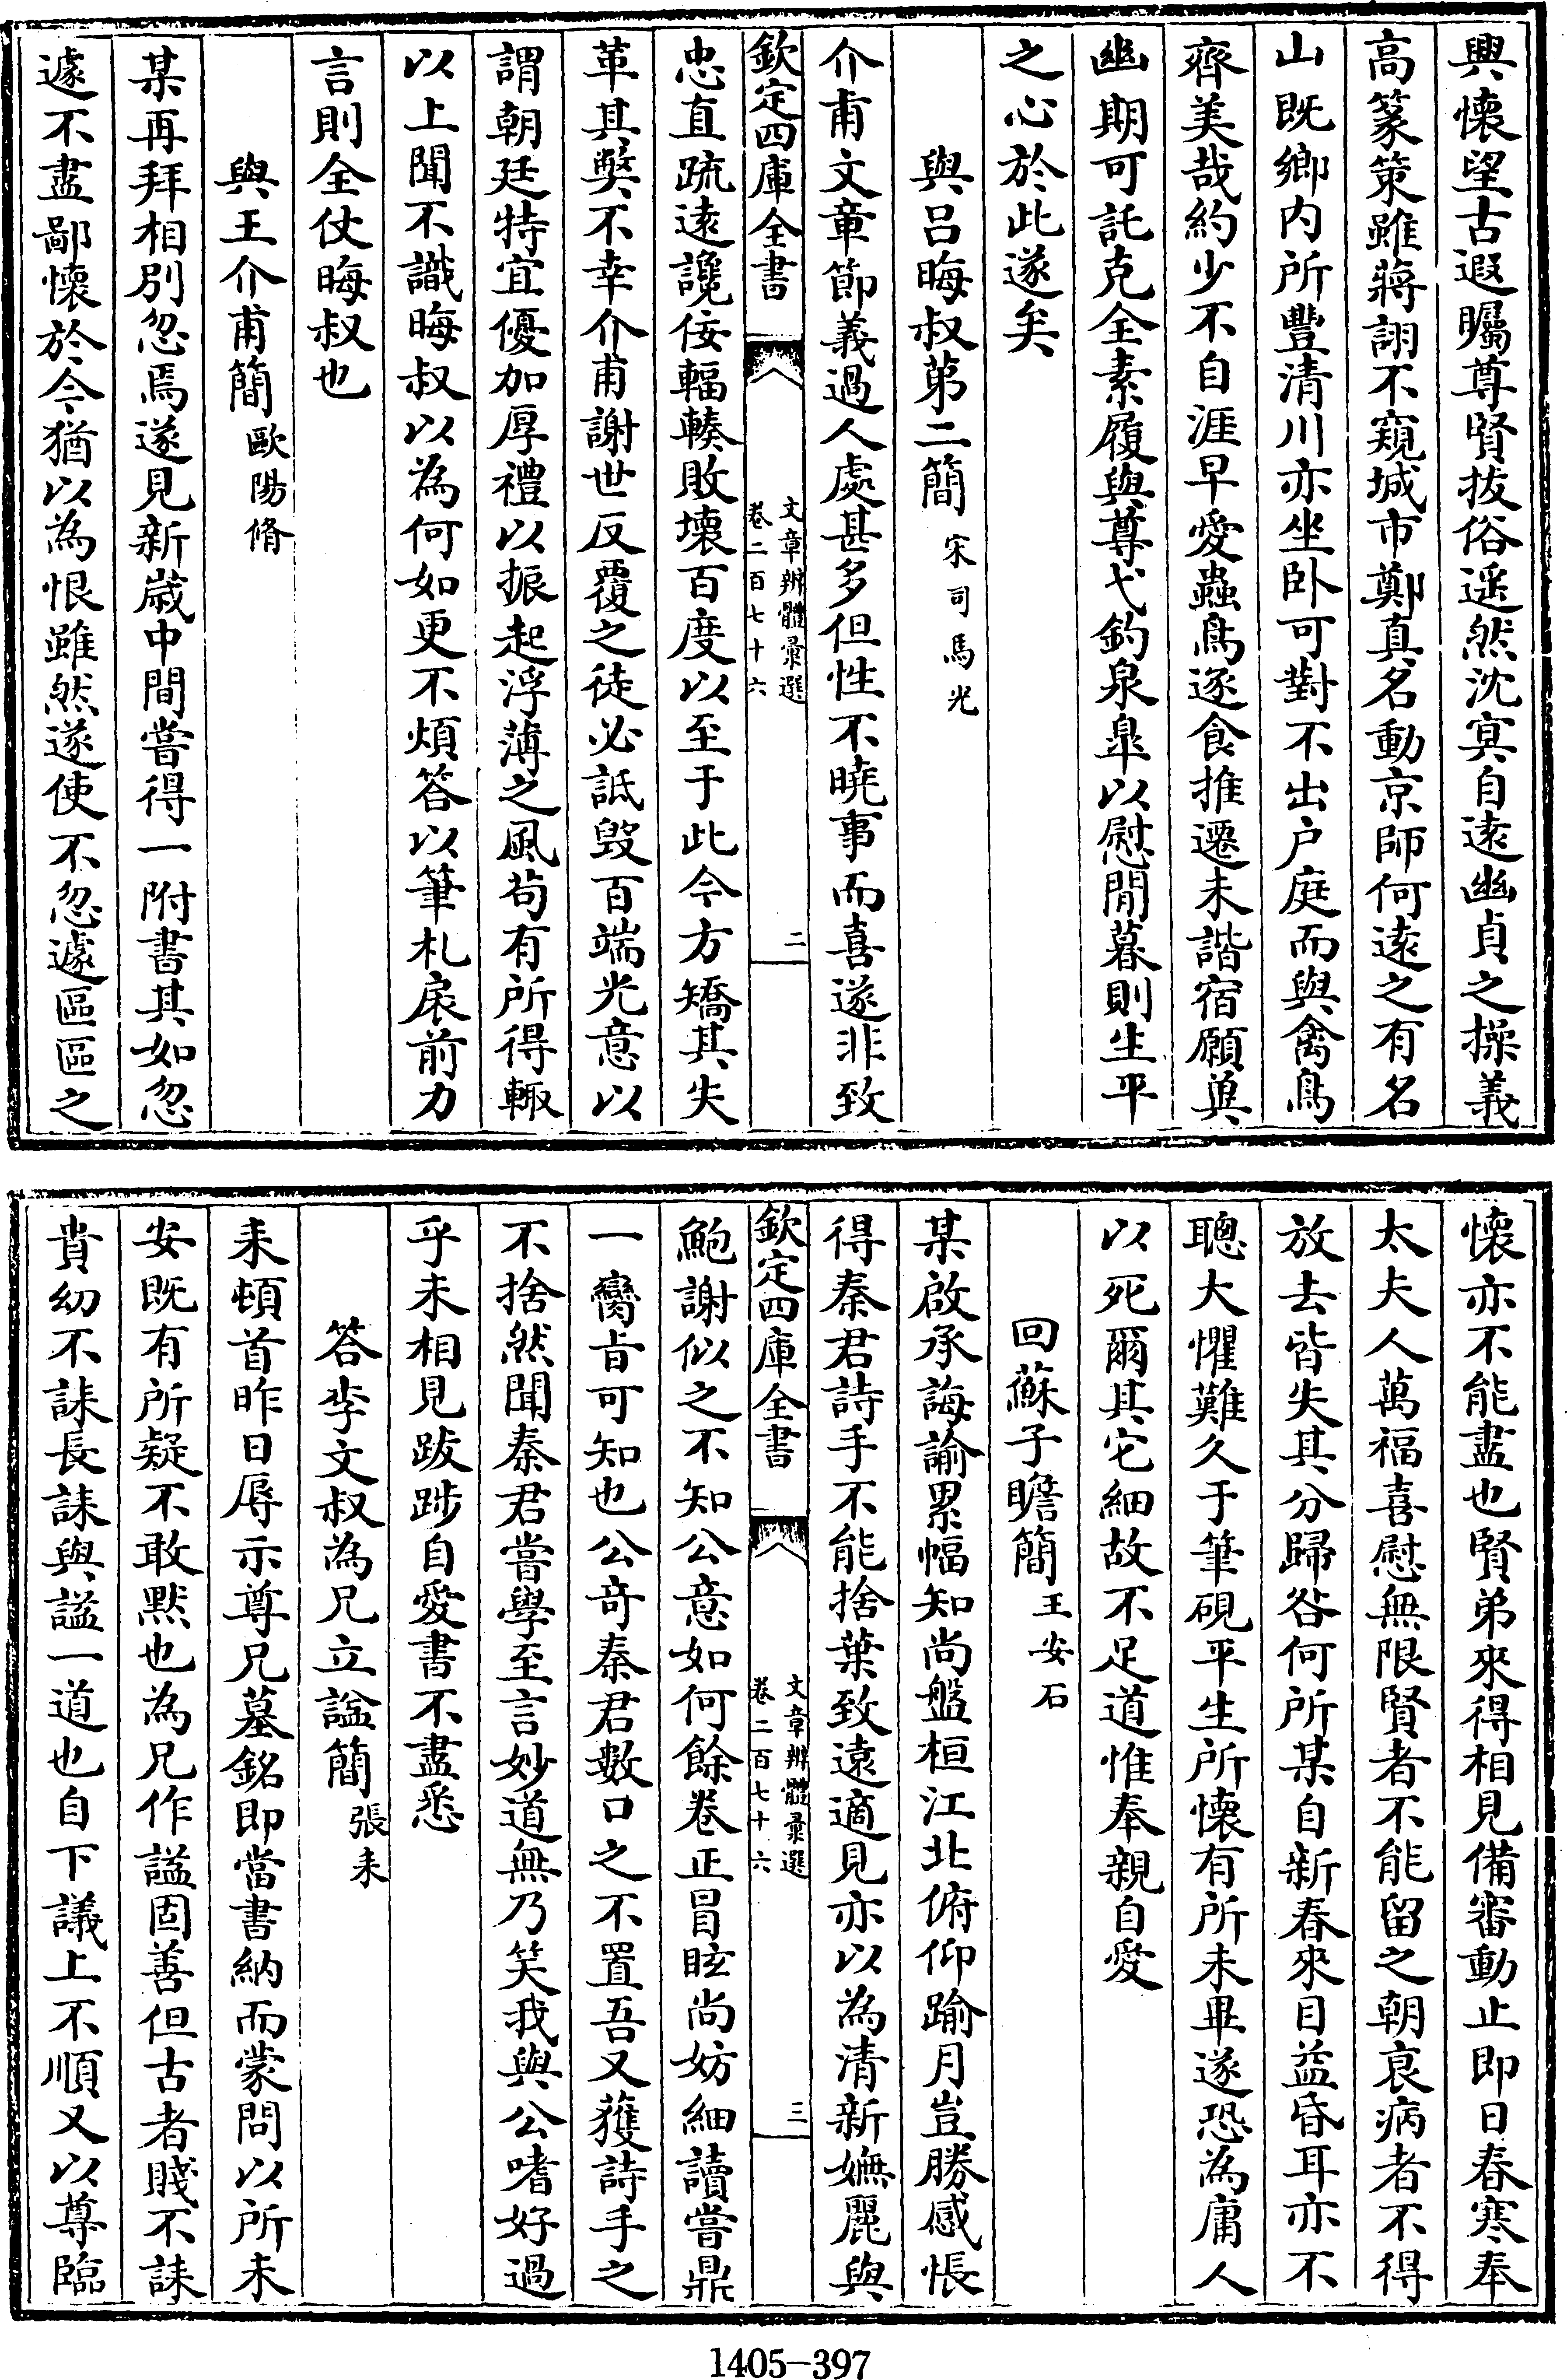 興懷望古遐矚尊賢拔俗遥然沈㝠自逺幽貞之操義
髙篆䇿雖蔣詡不窺城市鄭真名動京師何逺之有名
山既鄉内所豐清川亦坐卧可對不出户庭而與禽鳥
齊美哉約少不自涯早愛蟲鳥逐食推遷未諧宿願㒷
幽期可託克全素履與尊弋釣泉臯以慰閒暮則生平
之心於此遂矣
與吕晦叔第二簡宋司馬光
介甫文章節義過人處甚多但性不曉事而喜遂非致
欽定四庫全書
文章辨體彚選
卷二百七十六
二
忠直疏逺讒佞輻輳敗壊百度以至于此今方矯其失
革其獘不幸介甫謝世反覆之徒必詆毀百端光意以
謂朝廷特宜優加厚禮以振起浮薄之風茍有所得輙
以上聞不識晦叔以為何如更不煩答以筆札扆前力
言則全仗晦叔也
與王介甫簡歐陽脩
某再拜相别忽焉遂見新嵗中間嘗得一附書其如忽
遽不盡鄙懷於今猶以為恨雖然遂使不忽遽區區之
懷亦不能盡也賢弟來得相見備審動止即日春寒奉
太夫人萬福喜慰無限賢者不能留之朝衰病者不得
放去皆失其分歸咎何所某自新春來目益昏耳亦不
聰大懼難久于筆硯平生所懷有所未畢遂恐為庸人
以死爾其它細故不足道惟奉親自愛
回蘇子瞻簡王安石
某啟承誨諭累幅知尚盤桓江北俯仰踰月豈勝感悵
得秦君詩手不能捨葉致遠適見亦以為清新嫵麗與
欽定四庫全書
文章辨體彚選
卷二百七十六
三
鮑謝似之不知公意如何餘卷正冐眩尚妨細讀嘗鼎
一臠㫖可知也公竒秦君數口之不置吾又獲詩手之
不捨然聞秦君嘗學至言妙道無乃笑我與公嗜好過
乎未相見跋踄自愛書不盡悉
答李文叔為兄立諡簡張耒
耒頓首昨日辱示尊兄墓銘即當書納而蒙問以所未
安既有所疑不敢黙也為兄作諡固善但古者賤不誄
貴幼不誄長誄與諡一道也自下議上不順又以尊臨
1405-397